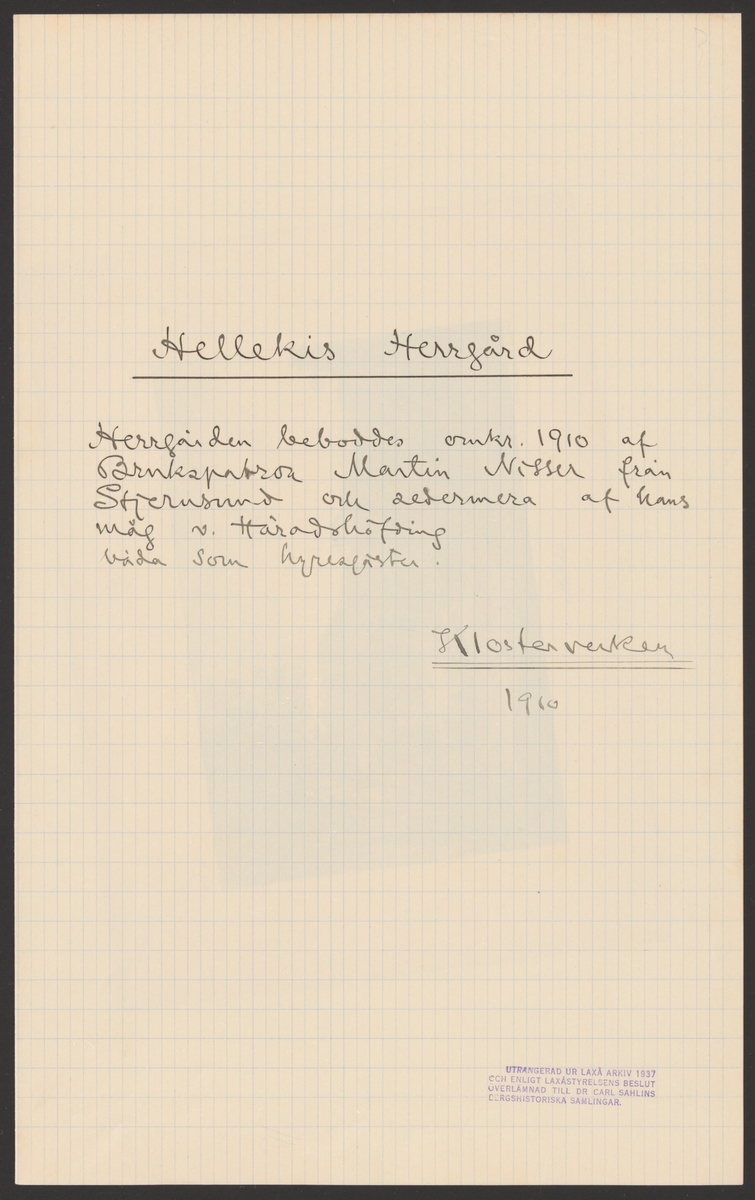 Hellekis Herrgård
Herrgården beboddes omkr. 1910 af
Brukspatron Martin Nisser från
Stjernsund och sedermera af hans
måg v. Häradshöfding
båda som hyresgäster.
Klosterverken
1910
UTRANGERAD UR LAXÅ ARKIV 1937
OCH ENLIGT LAXÅSTYRELSENS BESLUT
ÖVERLÄMNAD TILL DR CARL SAHLINS
BERGSHISTORISKA SAMLINGAR.